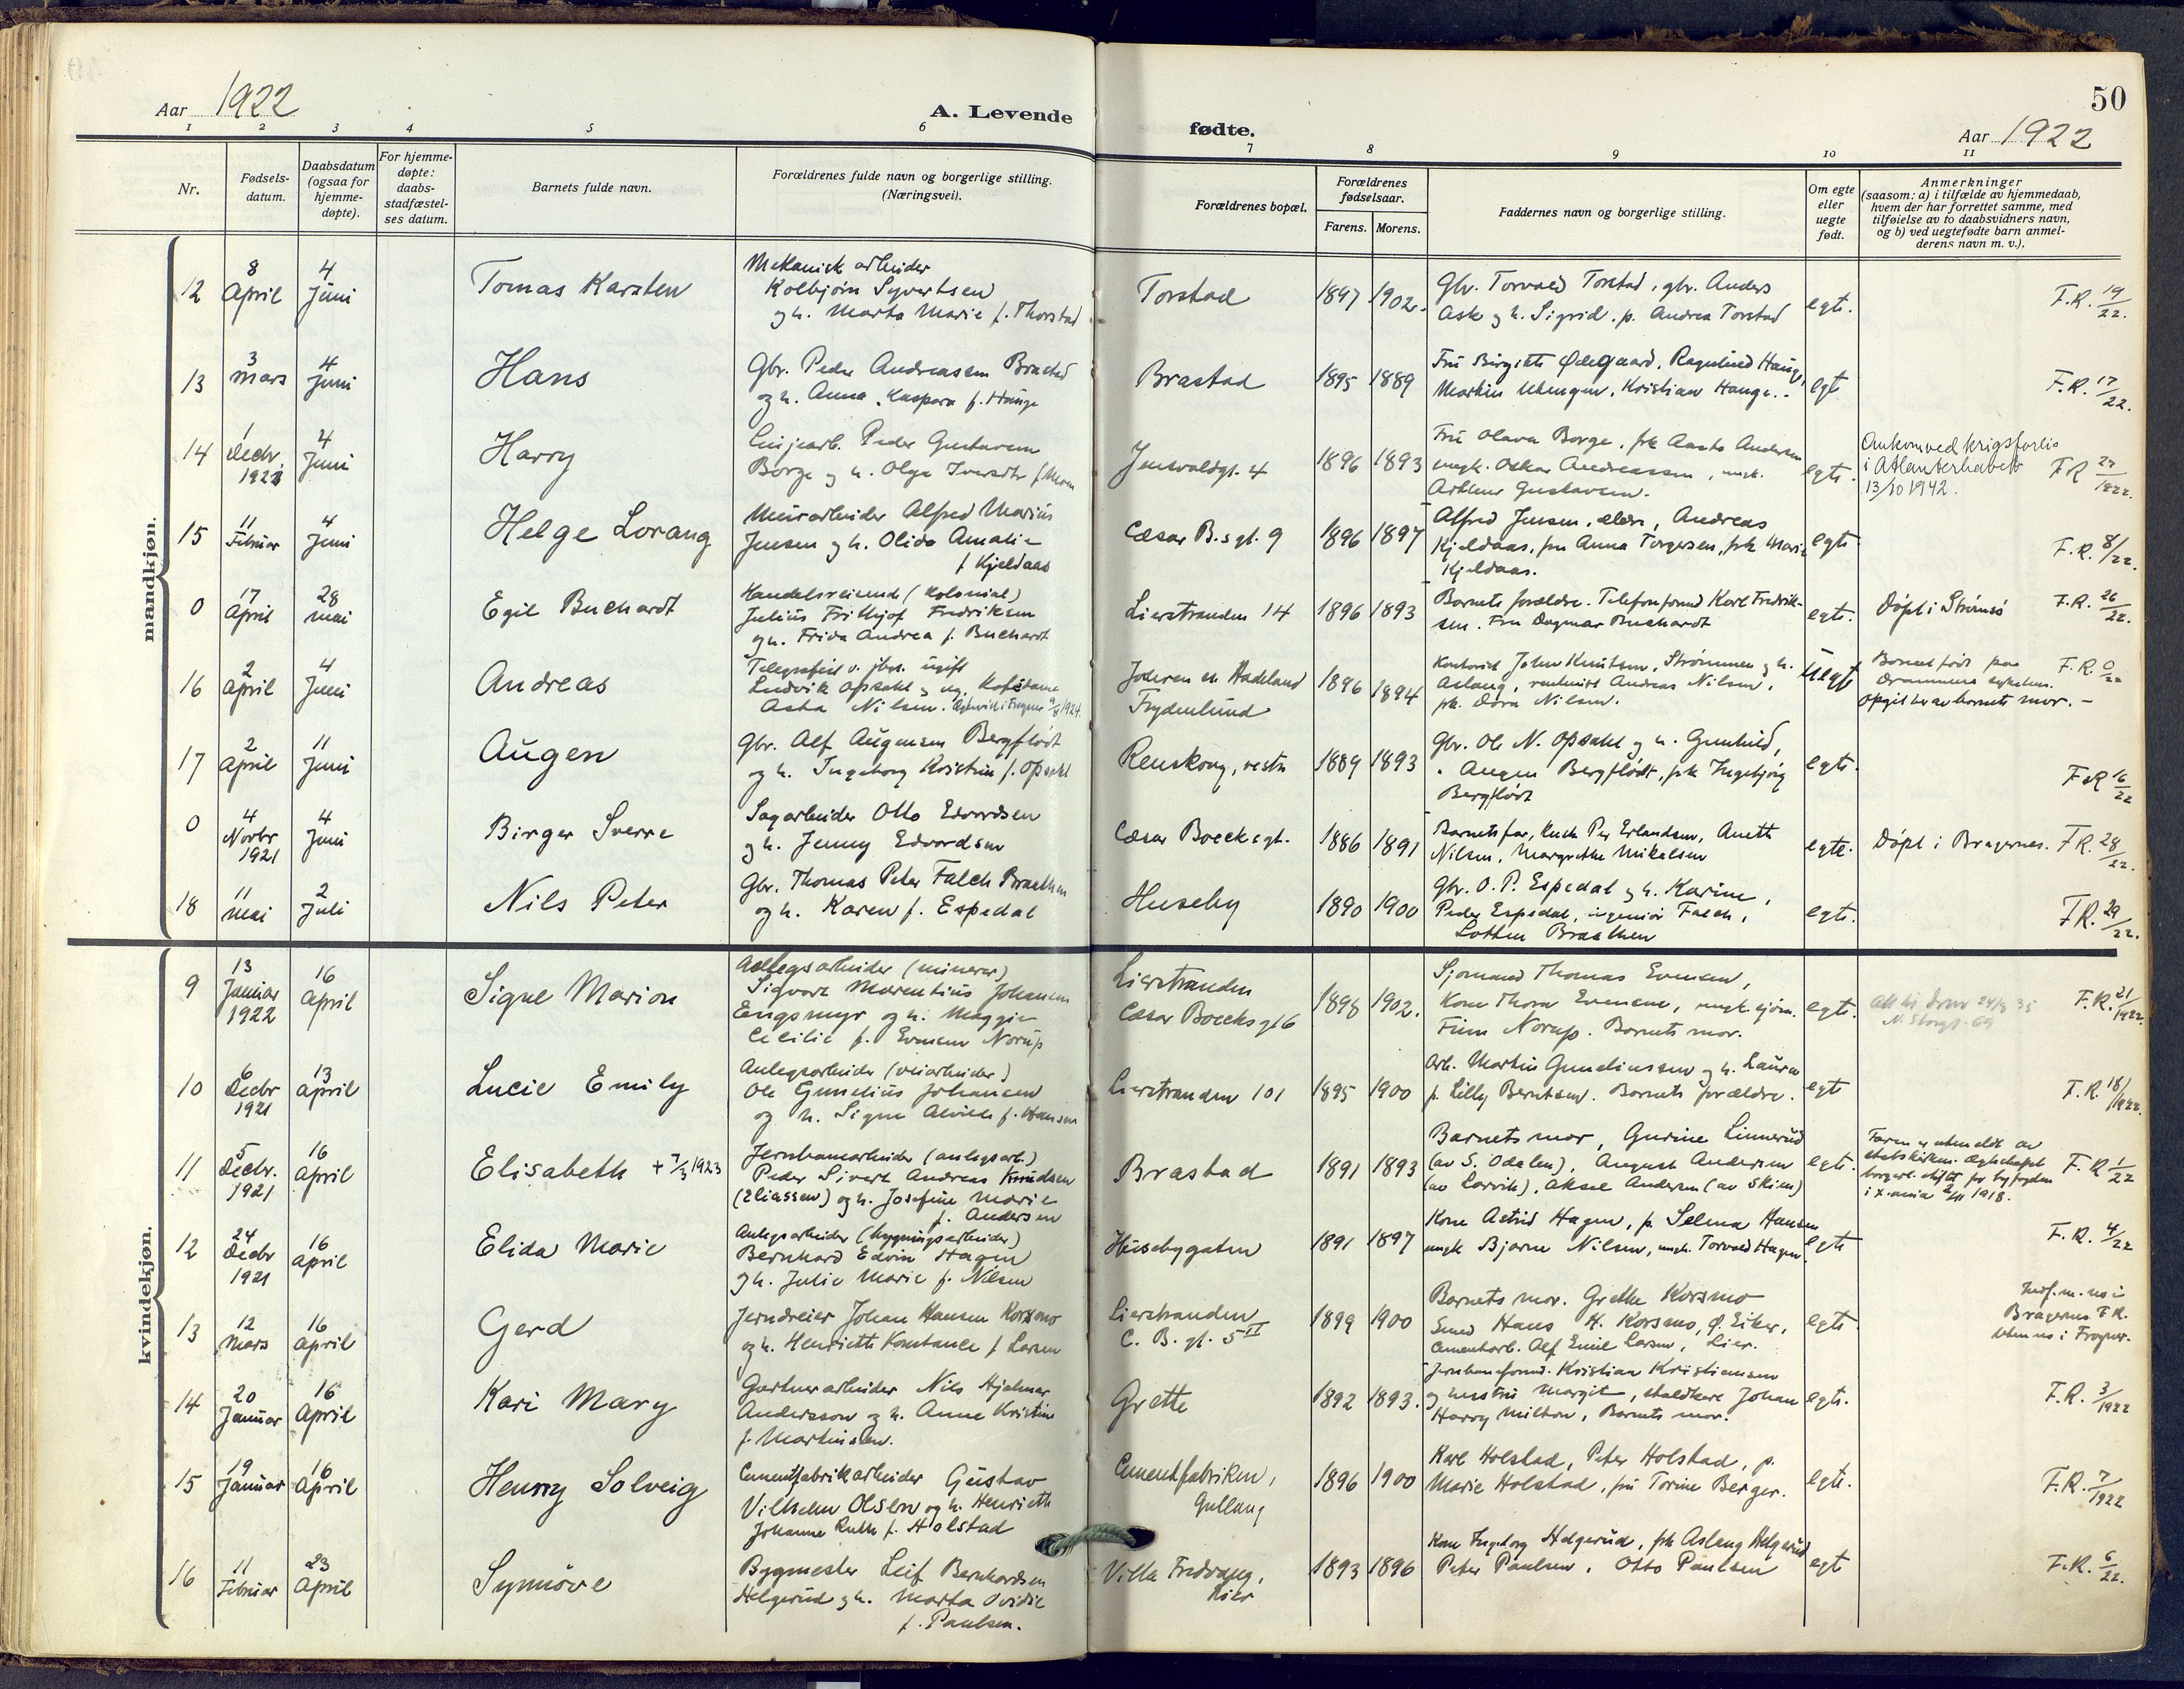 Aar 1922
A. Levende
fødte.
50
Aar 1922
1 2 3 4 5 6 7 8 9 10 11
Nr.
Fødsels-
datum.
Daabsdatum
(ogsaa for
hjemme-
døpte).
For hjemme-
døpte:
daabs-
stadfæstel-
ses datum.
Barnets fulde navn.
Forældrenes fulde navn og borgerlige stilling.
(Næringsvei).
Forældrenes bopæl.
Forældrenes
fødselsaar.
Farens. Morens.
Faddernes navn og borgerlige stilling.
Om egte
eller
uegte
født.
Anmerkninger
(saasom: a) i tilfælde av hjemmedaab,
hvem der har forrettet samme, med
tilføielse av to daabsvidners navn,
og b) ved uegtefødte barn anmel-
derens navn m. v.).
mandkjøn.
12
8
April
4
Juni
Tomas Karsten
Mekanisk arbeider
Kolbjørn Syvertsen
og h. Marta Marie f. Thorstad
Torstad
1897 1902.
Gbr. Torvald Torstad, gbr. Anders
Ask og h. Sigrid, p. Andrea Torstad
egte.
F.R. 19/22.
13
3
Mars
4
Juni
Hans
Gbr. Peder Andreassen Brastad
og h. Anna Kaspara f. Hauge
Brastad
1895 1889
Fru Birgitte Ødegaard, Ragnhild Hauge,
Martin, Kristian Hauge.
egte
F.R. 17/22.
14
1
Decbr.
1921
4
Juni
Harry
Linjearb. Peder Gustavsen
Borge og h. Olga
Jensvoldgt. 4
1896 1893
Fru Olava Borge, frk Aasta Andersen
ungk. Oskar Andreassen, ungk.
Arthur Gustavsen.
egte.
Omkom ved krigsforlis
i Atlanterhavet
13/10 1942.
F.R. 1922.
15
11
Februar
4
Juni
Helge Lorang
Murarbeider Alfred Marius
Jensen og h. Olida Amalie
f. Kjeldaas
Cæsar B.s gt. 9
1896 1897
Alfred Jensen, ældre, Andreas
Kjeldaas, fru Anna Torgersen, frk Marie
Kjeldaas.
egte
F.R. 8/22.
0
17
April
28
Mai
Egil Buchardt
Handelsreisende (kolonial)
Julius Frithjof Fredriksen
og h. Frida Andrea f. Buchardt
Lierstranden 14
1896 1893
Barnets forældre. Telefonformd Karl Fredrik-
sen. Fru Dagmar Buchardt
egte.
Døpt i Strømsø
F.R. 26/22.
16
2
April
4
Juni
Andreas
Telegrafist v. jbn. ugift
Ludvik Opsahl og ug.
Asta Nilsen.
Jaderen st. Hadeland
Frydenlund
1896 1894
Kontorist John Knutsen, Strømmen og h.
Aslaug, rentenist Andreas Nilsen,
frk. Dora Nilsen.
Uegte
Barnet født paa
Drammens sykehus.
Opgit her av barnets mor. -
F.R. 0/22
17
2
April
11
Juni
Augen
Gbr. Alf Augensen Bergflødt
og h. Ingeborg Kristine f. Opsahl
Renskoug, vestre
1889 1893
Gbr. Ole N. Opsahl og h. Gunhild,
Augen Bergflødt, frk Ingebjørg
Bergflødt
egte.
F.R. 16/22
0
4
Novbr
1921
4
Juni
Birger Sverre
Sagarbeider Otto Edvardsen
og h. Jenny Edvardsen
Cæsar Boecks gt.
1886 1891
Barnets far, Per Erlandsen, Anette
Nilsen, Margrethe Mikalsen
egte.
Døpt i Bragernes.
F.R. 28/22.
18
11
Mai
2
Juli
Nils Peter
Gbr. Thomas Peter Falch Braathen
og h. Karen f. Espedal
Huseby
1890 1900
Gbr. O. P. Espedal og h. Karine,
Peder Espedal, ingeniør Falch,
Lotten Braathen
egte.
F.R. 29/22.
kvindekjøn.
9
13
Januar
1922
16
April
Signe Marion
Anlegsarbeider (minerer)
Sigvart Marentius Johansen
Engsmyr og h. Maggie
Cecilie f. Evensen Norup
Lierstranden
Cæsar Boecks gt 6
1898 1902.
Sjømand Thomas Evensen,
Kone Thora Evensen, ungk. sjøm.
Finn Norup. Barnets mor.
egte.
F.R. 21/1922.
10
6
Decbr
1921
13
April
Lucie Emily
Anlegsarbeider (veiarbeider)
Ole Gunelius Johansen
og h. Signe Alvilde f. Hansen
Lierstranden 101
1895 1900
Arb. Martin Gundinssen og h. Laura
p. Lilly Berntsen. Barnets forældre.
egte
F.R. 18/1922.
11
5
Decbr.
1921
16
April
Elisabeth + 7/3 1923
Jernbanearbeider (anlegsarb.)
Peder Sivert Andreas Knudsen
(Eliassen) og h. Josefine Marie
f. Andersen
Brastad
1891 1893
Barnets mor, Gurine Linnerud
(av S. Odalen), August Andersen
(av Larvik), Aksel Andersen (av Skien)
egte.
Faren er utmeldt av
statskirken. Egteskapet
borgerl. stiftet for byfogden
i X.ania 2/11 1918.
F.R. 1/22
12
24
Decbr
1921
16
April
Elida Marie
Anlegsarbeider (bygningsarbeider)
Bernhard Edvin Hagen
og h. Julie Marie f. Nilsen
Husebygaten
1891 1897
Kone Astrid Hagen, p. Selma Hansen
ungk Bjarne Nilsen, ungk. Torvald Hagen
egte
F.R. 4/22
13
12
Mars
16
April
Gerd
Jerndreier Johan Hansen Korsmo
og h. Henriette Konstance f. Larsen
Lierstranden
C. B. gt. 5 II
1899 1900
Barnets mor. Grethe Korsmo
Smed Hans H. Korsmo, Ø. Eiker,
Cementarb. Alf Emil Larsen, Lier.
egte
Bragernes F.R.
14
20
Januar
16
April
Kari Mary
Gartnerarbeider Nils Hjalmar
Andersson og h. Anne Kristine
f. Martinsen.
Grette
1892 1893.
Jernbaneformd. Kristian Kristiansen
og hustru Margit, staldkarl Johan
Harry Milton, Barnets mor.
egte.
F.R. 3/1922
15
19
Januar
16
April
Henny Solveig
Cementfabrikarbeider Gustav
Vilhelm Olsen og h. Henriette
Johanne Ruth f. Holstad
Cementfabriken,
Gullaug
1896 1900
Karl Holstad, Peter Holstad, p.
Marie Holstad, fru Torine Berger.
egte.
F.R. 7/1922
16
11
Februar
23
April
Synnøve
Bygmester Leif Bernhardsen
Helgerud og h. Marta Ovidie
f. Paulsen.
Villa Fredvang,
Lier
1893 1896
Kone Ingeborg Helgerud, frk Aslaug Helgerud
Peter Paulsen, Otto Paulsen
egte
F.R. 6/22.